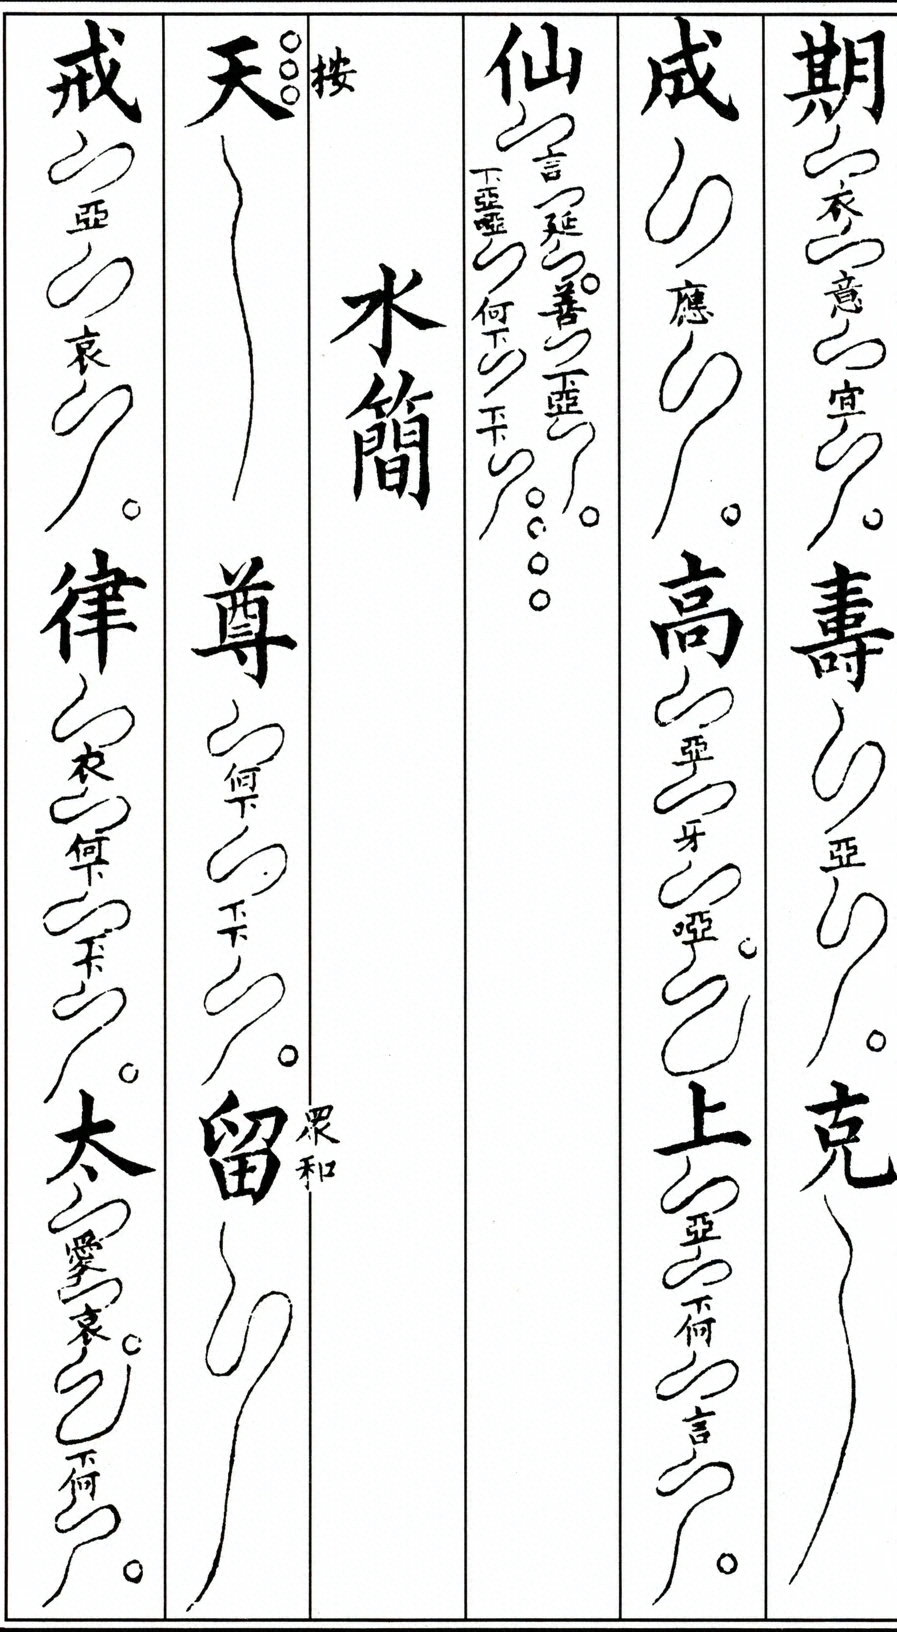 期衣意宜○壽亞○克
成應○高亞牙啞○上亞下何言○
仙言延○善下亞○下亞啞何下下下○○○○
水簡
按○○○天尊何下下下○眾和留
戒亞哀○律衣何下下下○太愛哀○下何○